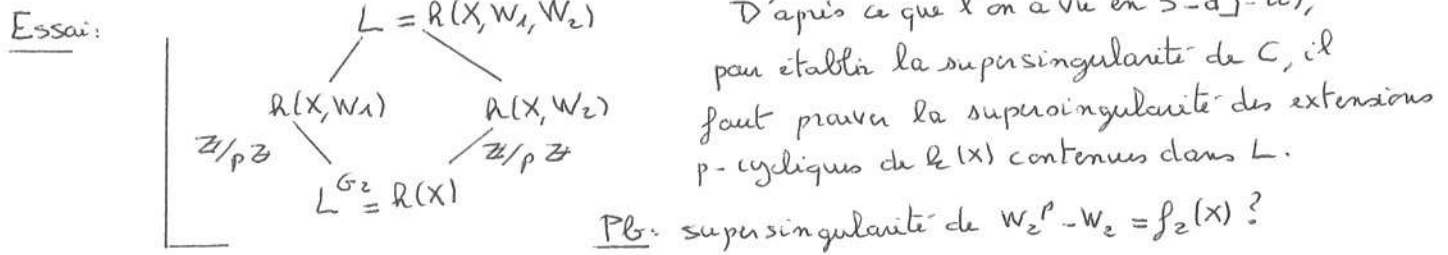 Essai:
L = k(X, W1, W2)
k(X, W1)
k(X, W2)
Z/pZ
Z/pZ
L^G2 = k(X)
D'après ce que l'on a vu en
pour établir la supersingularité de C, il
faut prouver la supersingularité des extensions
p-cycliques de k(X) contenues dans L.
Pb: supersingularité de W2^p - W2 = f2(X) ?